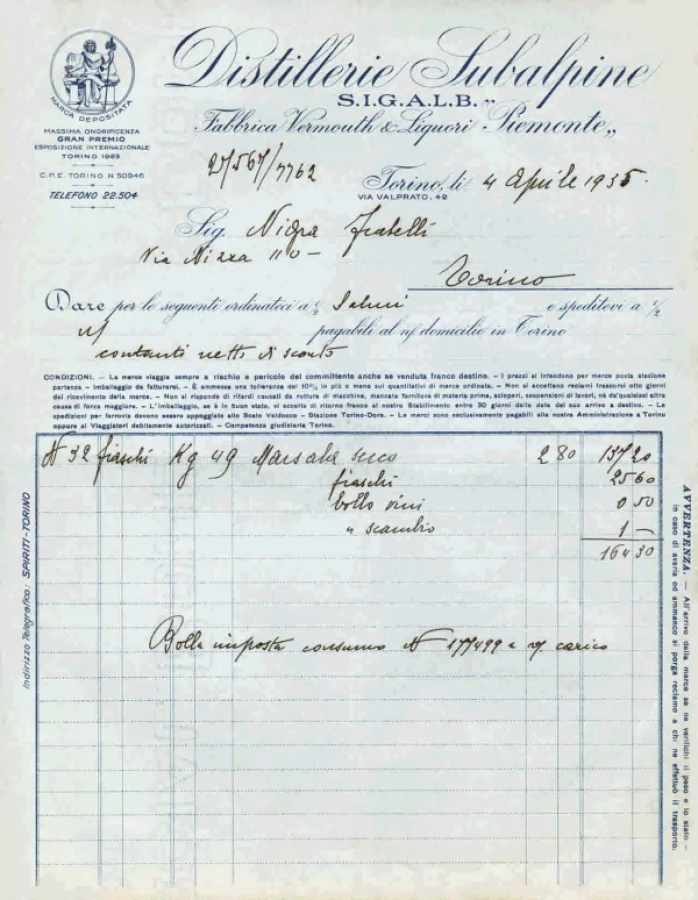 Distillerie Subalpine
S.I.G.A.L.B. "
Fabbrica Vermouth & Liquori Piemonte „
MARCA DEPOSITATA
MASSIMA ONORIFICENZA
GRAN PREMIO
ESPOSIZIONE INTERNAZIONALE
TORINO 1923
C.P.E. TORINO N 50946
TELEFONO 22.504
27567/7762
Torino, li 4 aprile 1935.
VIA VALPRATO, 42
Sig. Nigra Fratelli
Via Nizza 110 —
Torino
Dare per le seguenti ordinateci a e speditevi a
pagabili al n/ domicilio in Torino
contanti netto di sconto
CONDIZIONI. — La merce viaggia sempre a rischio e pericolo del committente anche se venduta franco destino. – I prezzi si intendono per merce posta stazione
partenza – Imballaggio da fatturarsi. – È ammessa una tolleranza del 10% in più o meno sui quantitativi di merce ordinata. – Non si accettano reclami trascorsi otto giorni
dal ricevimento della merce. – Non si risponde di ritardi causati da rotture di macchine, mancata fornitura di materia prima, scioperi, sospensioni di lavori, nè da qualsiasi altra
causa di forza maggiore. – L'imballaggio, se è in buon stato, si accetta di ritorno franco al nostro Stabilimento entro 30 giorni dalla data del suo arrivo a destino. – Le
spedizioni per ferrovia devono essere appoggiate allo Scalo Valdocco – Stazione Torino-Dora. – Le merci sono esclusivamente pagabili alla nostra Amministrazione a Torino
oppure ai Viaggiatori debitamente autorizzati. – Competenza giudiziaria Torino.
N 32 fiaschi Kg 49 Marsala secco 2 80 137 20
fiaschi 25 60
bollo vini 0 50
" scambio 1 —
164 30
Bolla imposta consumo N 177499 a v/ carico
Indirizzo Telegrafico: SPIRITI-TORINO
AVVERTENZA. — All'arrivo della merce se ne verifichi il peso e lo stato –
in caso di avaria od ammanco si porga reclamo a chi ne effettuò il trasporto.